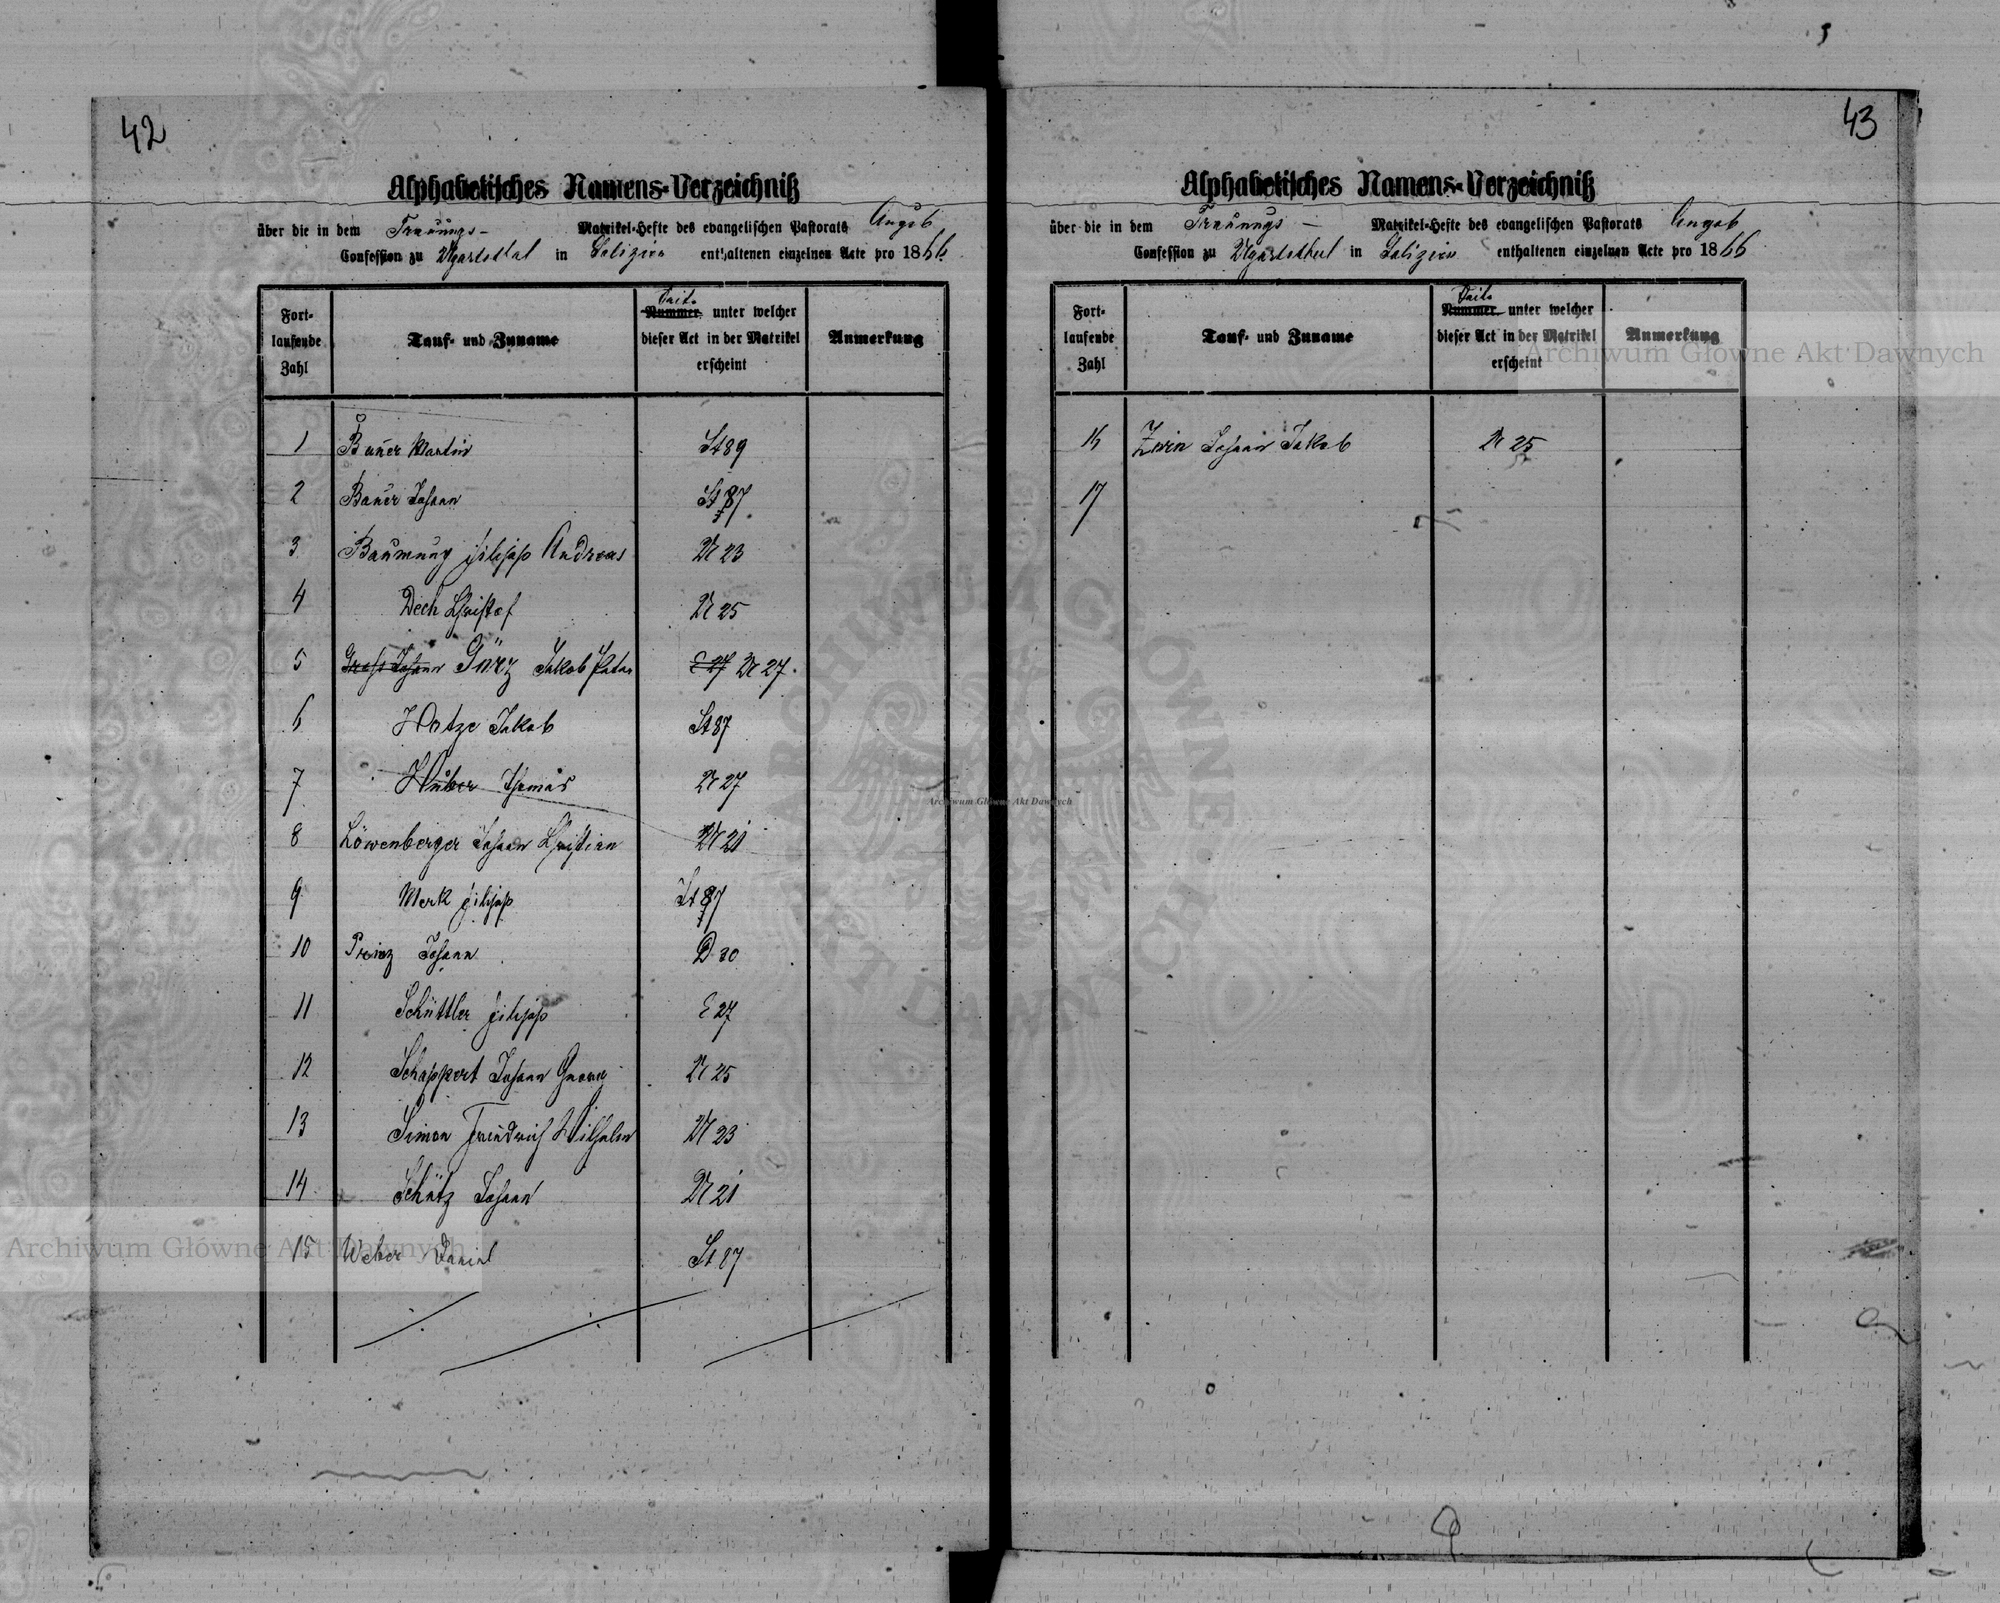 42
Alphabetisches Namens-Verzeichniß
über die in dem Trauungs- Matrikel-Hefte des evangelischen Pastorats Augsb
Confession zu Ugartsthal in Galizien enthaltenen einzelnen Acte pro 1866.
Fort-laufende Zahl
Tauf- und Zuname
Nummer Seite unter welcher dieser Act in der Matrikel erscheint
Anmerkung
1 Bauer Martin St 89
2 Bauer Johann St 87.
3 Baumung Filipp Andreas U 23
4 Dech Christof U 25
5 Gross Johann Görz Jakob Peter E 27 U 27.
6 Hotze Jakob St 87
7 Huber Thomas U 27
8 Löwenberger Johann Christian U 21
9 Merk Filipp St 87
10 Prinz Johann D 30
11 Schüttler Filipp E 27
12 Schappert Johann Georg U 25
13 Simon Friedrich Wilhelm U 23
14 Schütz Johann U 21
15 Weber Daniel St 87
43
Alphabetisches Namens-Verzeichniß
über die in dem Trauungs- Matrikel-Hefte des evangelischen Pastorats Augsb
Confession zu Ugartsthal in Galizien enthaltenen einzelnen Acte pro 1866
Fort-laufende Zahl
Tauf- und Zuname
Nummer Seite unter welcher dieser Act in der Matrikel erscheint
Anmerkung
16 Johann Jakob U 25
17
Archiwum Główne Akt Dawnych
Archiwum Główne Akt Dawnych
Archiwum Główne Akt Dawnych
ARCHIWUM GŁÓWNE AKT DAWNYCH